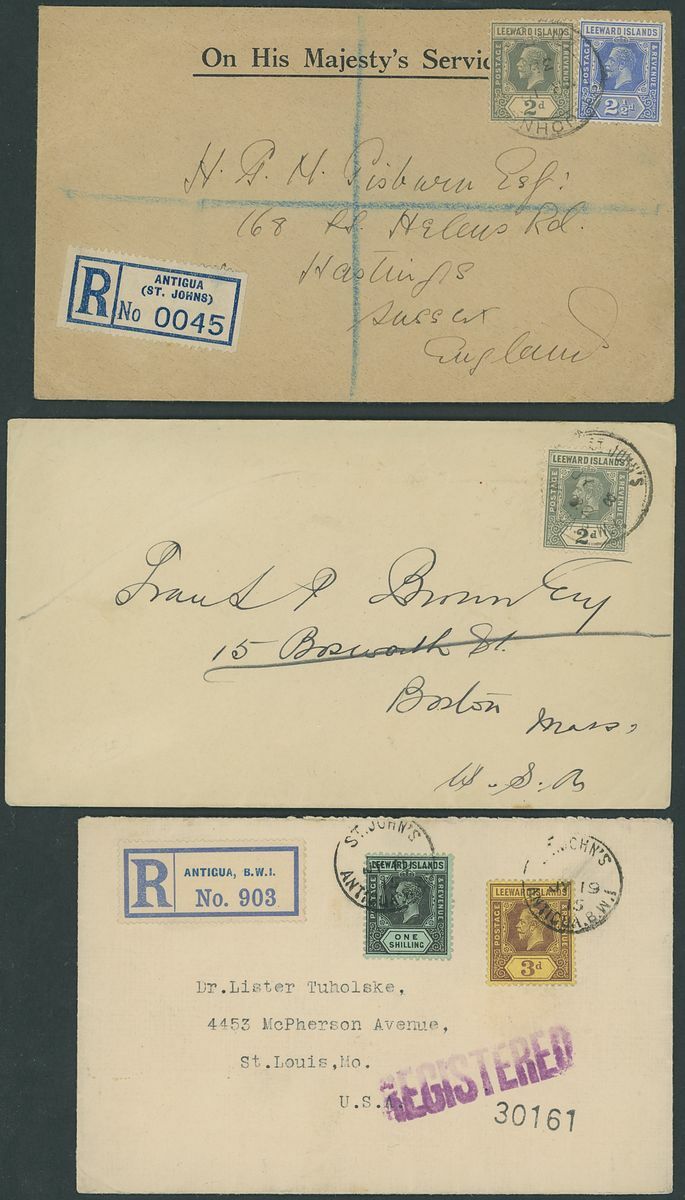 On His Majesty's Servic
LEEWARD ISLANDS
POSTAGE & REVENUE
2d
LEEWARD ISLANDS
POSTAGE & REVENUE
2½d
H. G. M. Esq:
168 St. Helens Rd.
Hastings
Sussex
England
R
ANTIGUA
(ST. JOHNS)
No 0045
ST. JOHN'S
LEEWARD ISLANDS
POSTAGE & REVENUE
2d
Frank P Brown Esq
15 Bosworth St.
Boston Mass.
U.S.A
R
ANTIGUA, B.W.I.
No. 903
ST. JOHN'S
ANTIGUA
LEEWARD ISLANDS
POSTAGE & REVENUE
ONE
SHILLING
ST. JOHN'S
19
ANTIGUA.B.W.I.
LEEWARD ISLANDS
POSTAGE & REVENUE
3d
Dr.Lister Tuholske,
4453 McPherson Avenue,
St.Louis,Mo.
U.S.A.
REGISTERED
30161